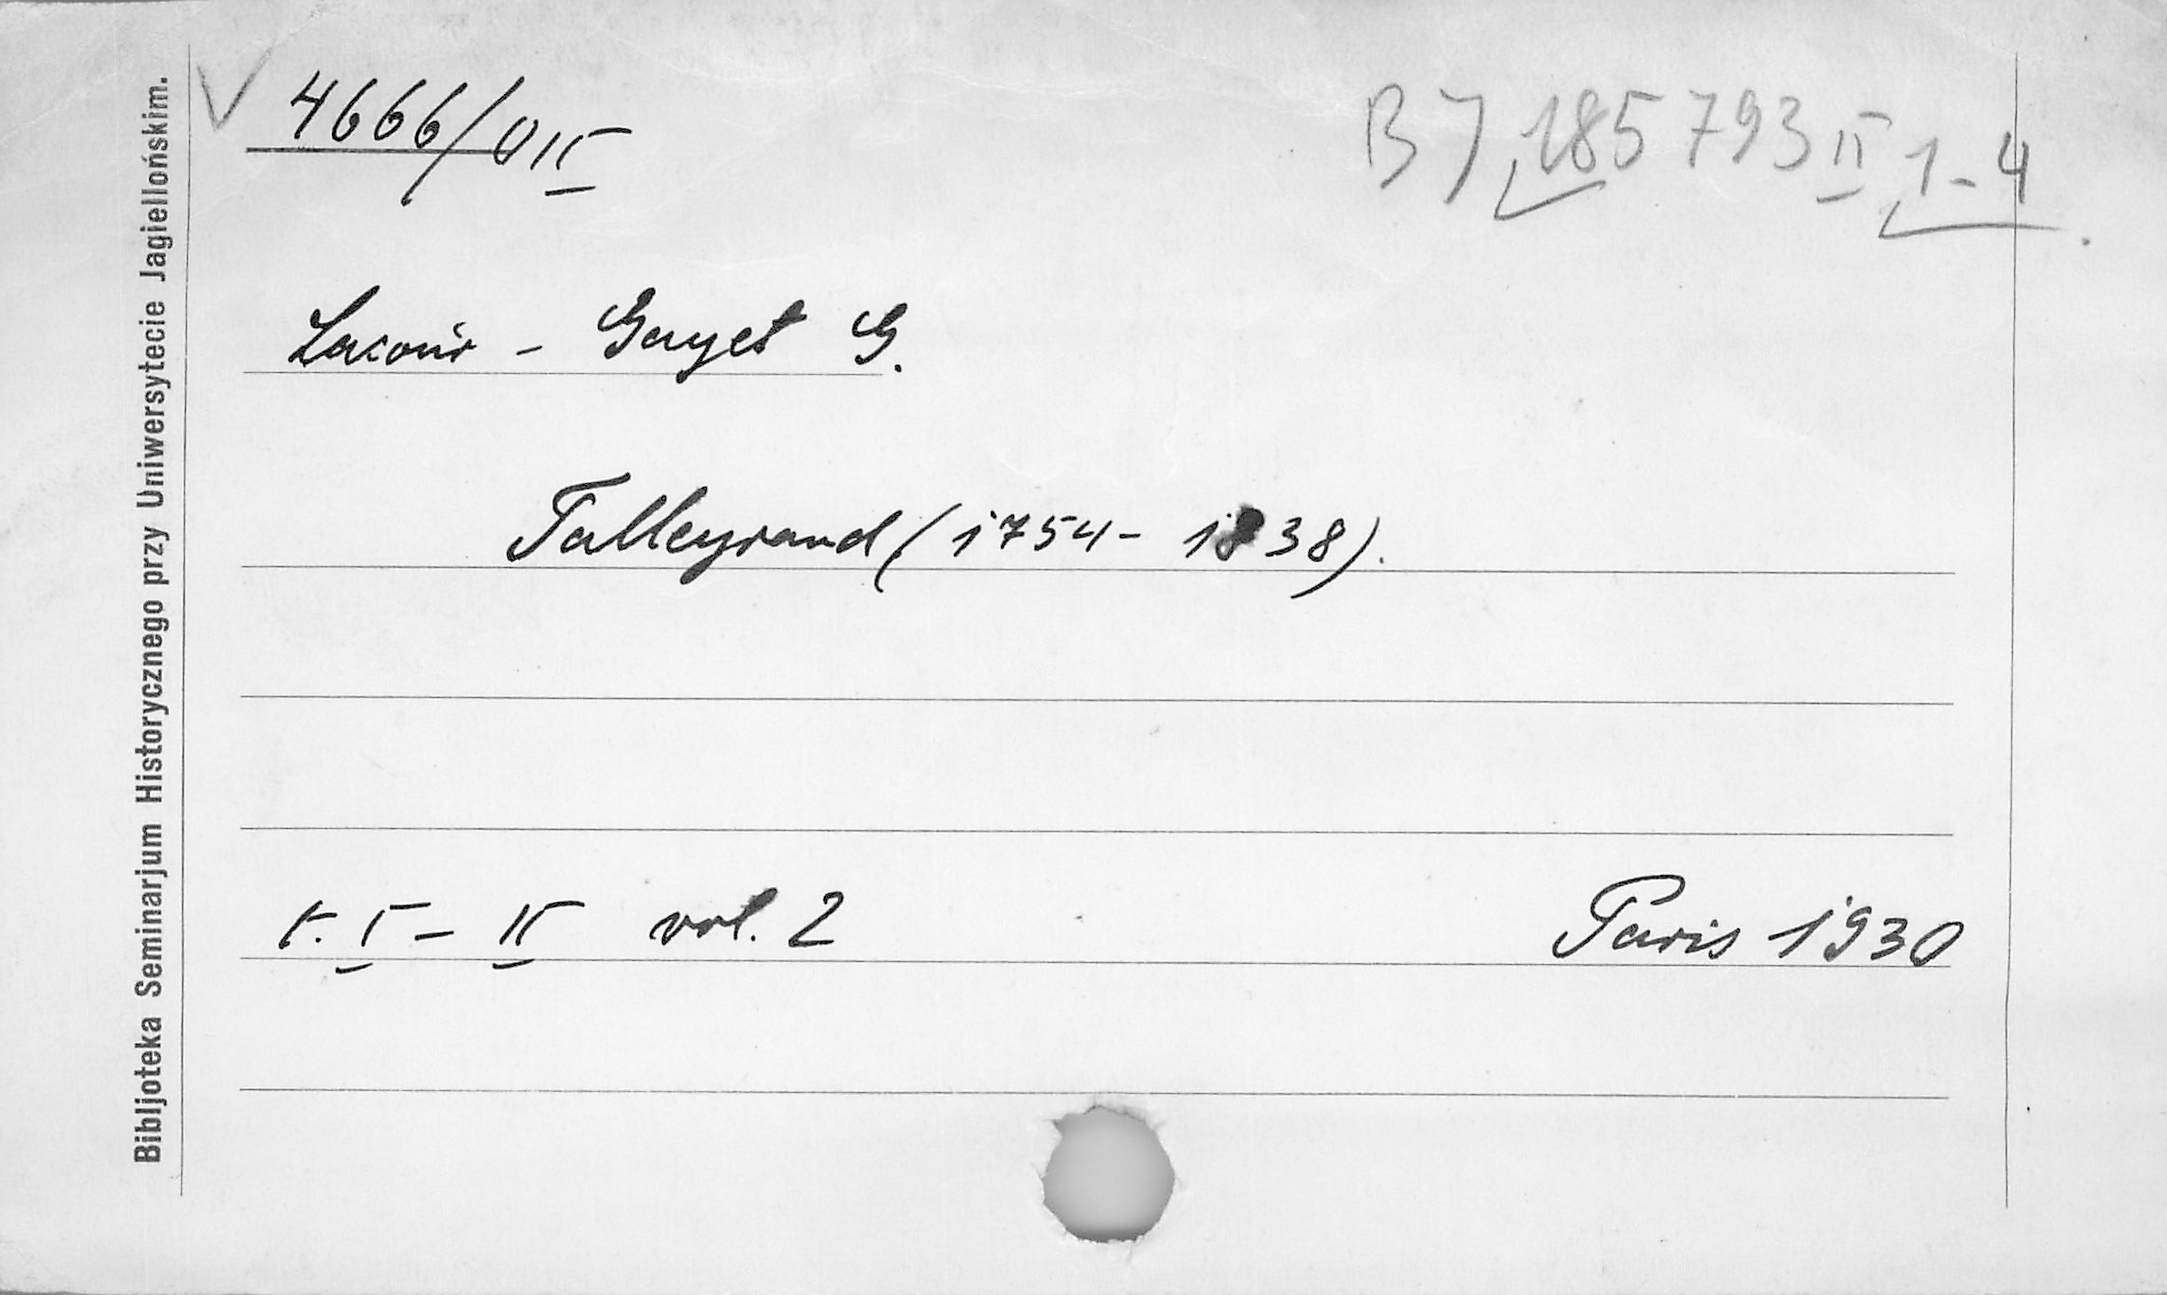 Bibljoteka Seminarjum Historycznego przy Uniwersytecie Jagiellońskim.
4666/0 II
BJ 185793 II 1-4.
Lacour - Gayet G.
Talleyrand (1754 - 1838).
t. I - II vol. 2
Paris 1930